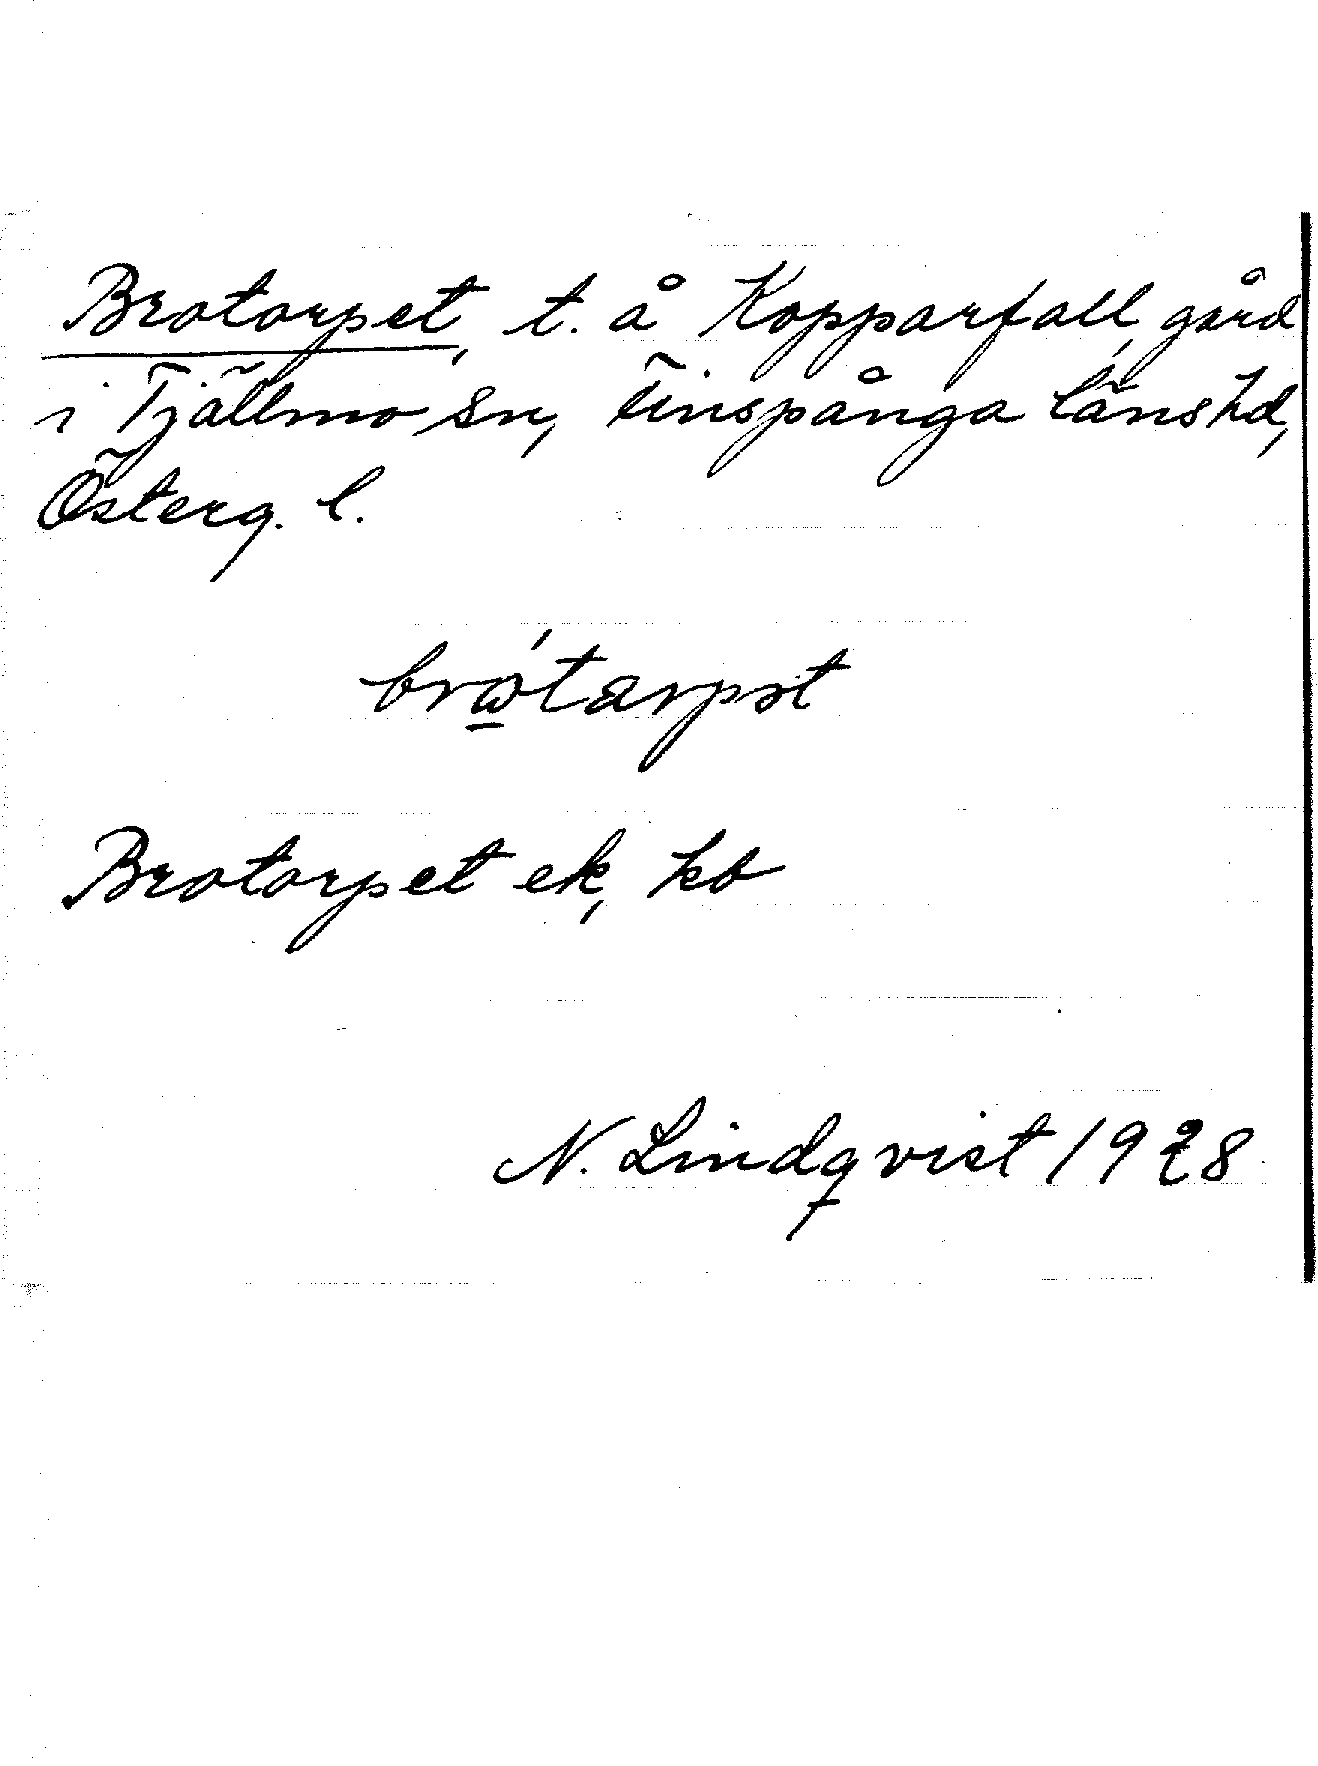 Brotorpet, t. å Kopparfall, gård
i Tjällmo sn, Finspånga läns hd,
Österg. l.
Brotorpet ek, kb
N. Lindqvist 1928